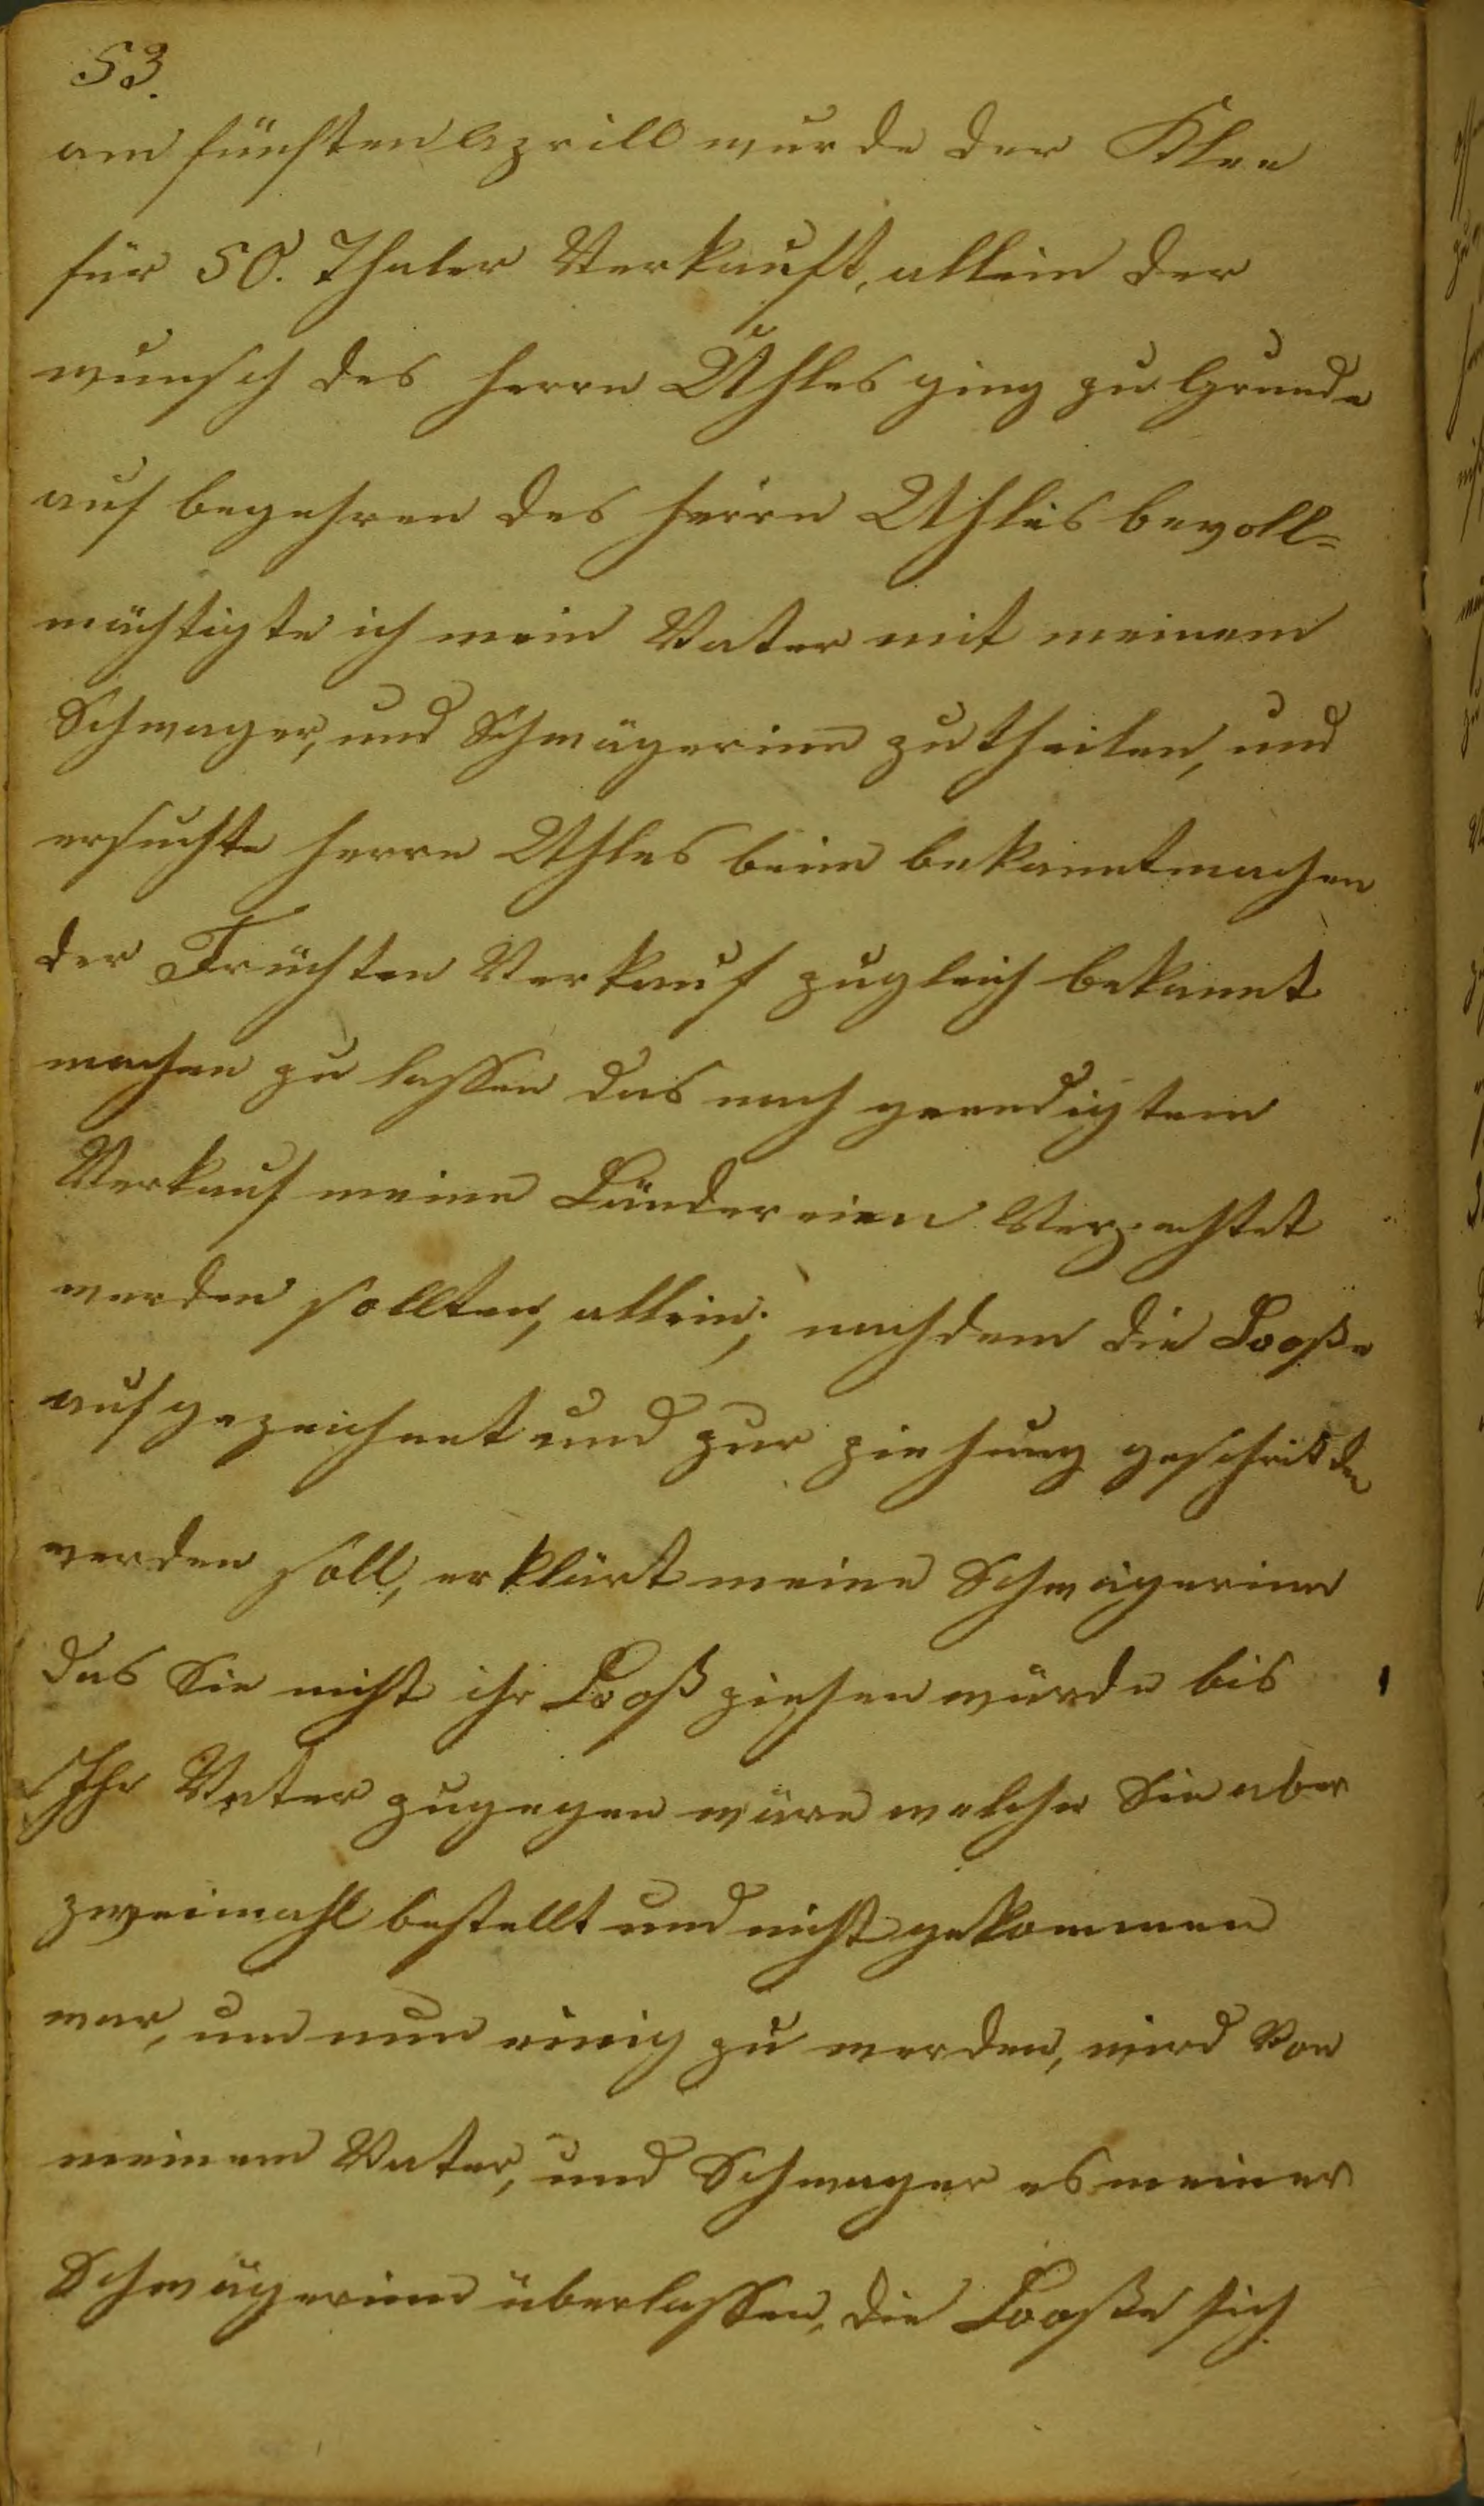 53.
am fünften Aprill wurde der Klee
für 50. Thaler Verkauft, allein der
wunsch des herrn Uhles ging zu Grunde
auf begehren des herrn Uhles bevoll=
mächtigte ich mein Vater mit meinem
Schwager, und Schwägerinn zu theilen, und
ersuchte herrn Uhles beim bekanntmachen
der Früchten Verkauf zugleich bekannt
machen zu lassen das nach geendigtem
Verkauf meine Ländereien Verpachtet
werden sollten, allein; nachdem die Looße
aufgezeichnet und zur ziehung geschritten
werden soll, erklärt meine Schwägerinn
das Sie nicht ihr Looß ziehen würde bis
Ihr Vater zugegen wäre welcher Sie aber
zweimahl bestellt und nicht gekommen
war, um nun einig zu werden, wird Von
meinem Vater, und Schwager es meiner
Schwägerinn überlassen, die Looße sich